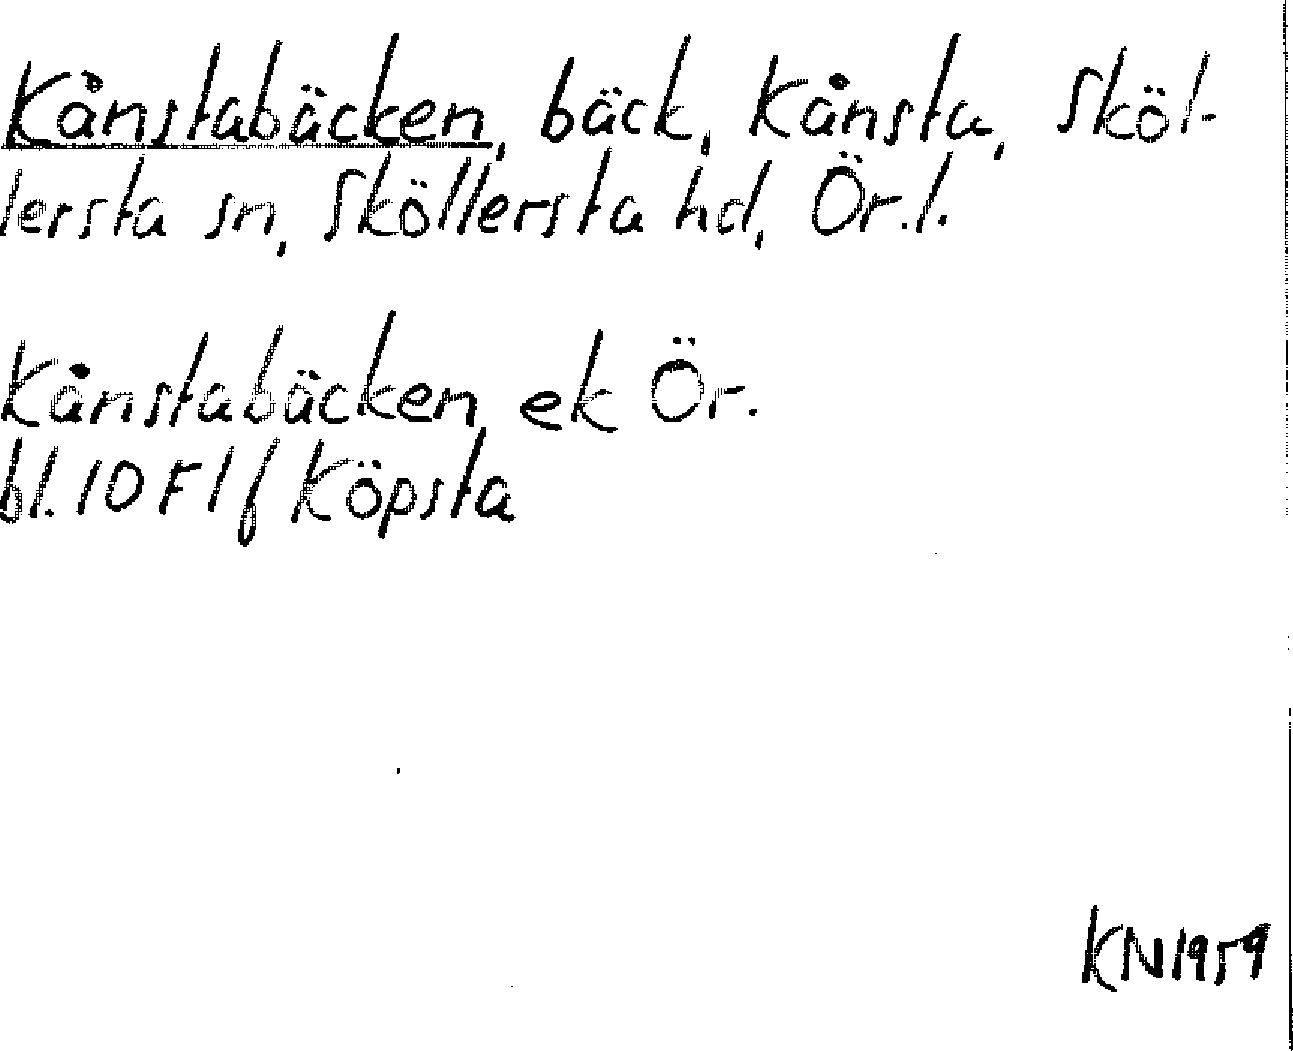 Kånstabäcken, bäck, Kånsta, Sköl-
lersta sn, Sköllersta hd, Ör.l.
Kånstabäcken ek Ör.
bl. 10 F1f Köpsta
KN1959